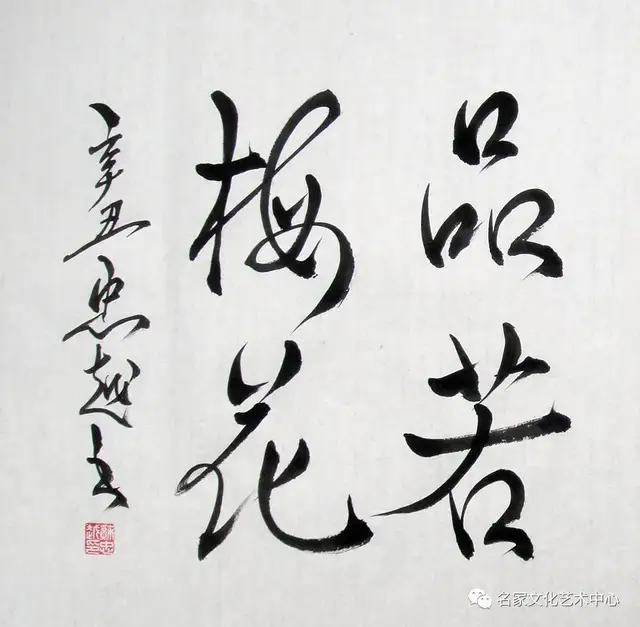 品若
梅花
辛丑忠越书
名家文化艺术中心